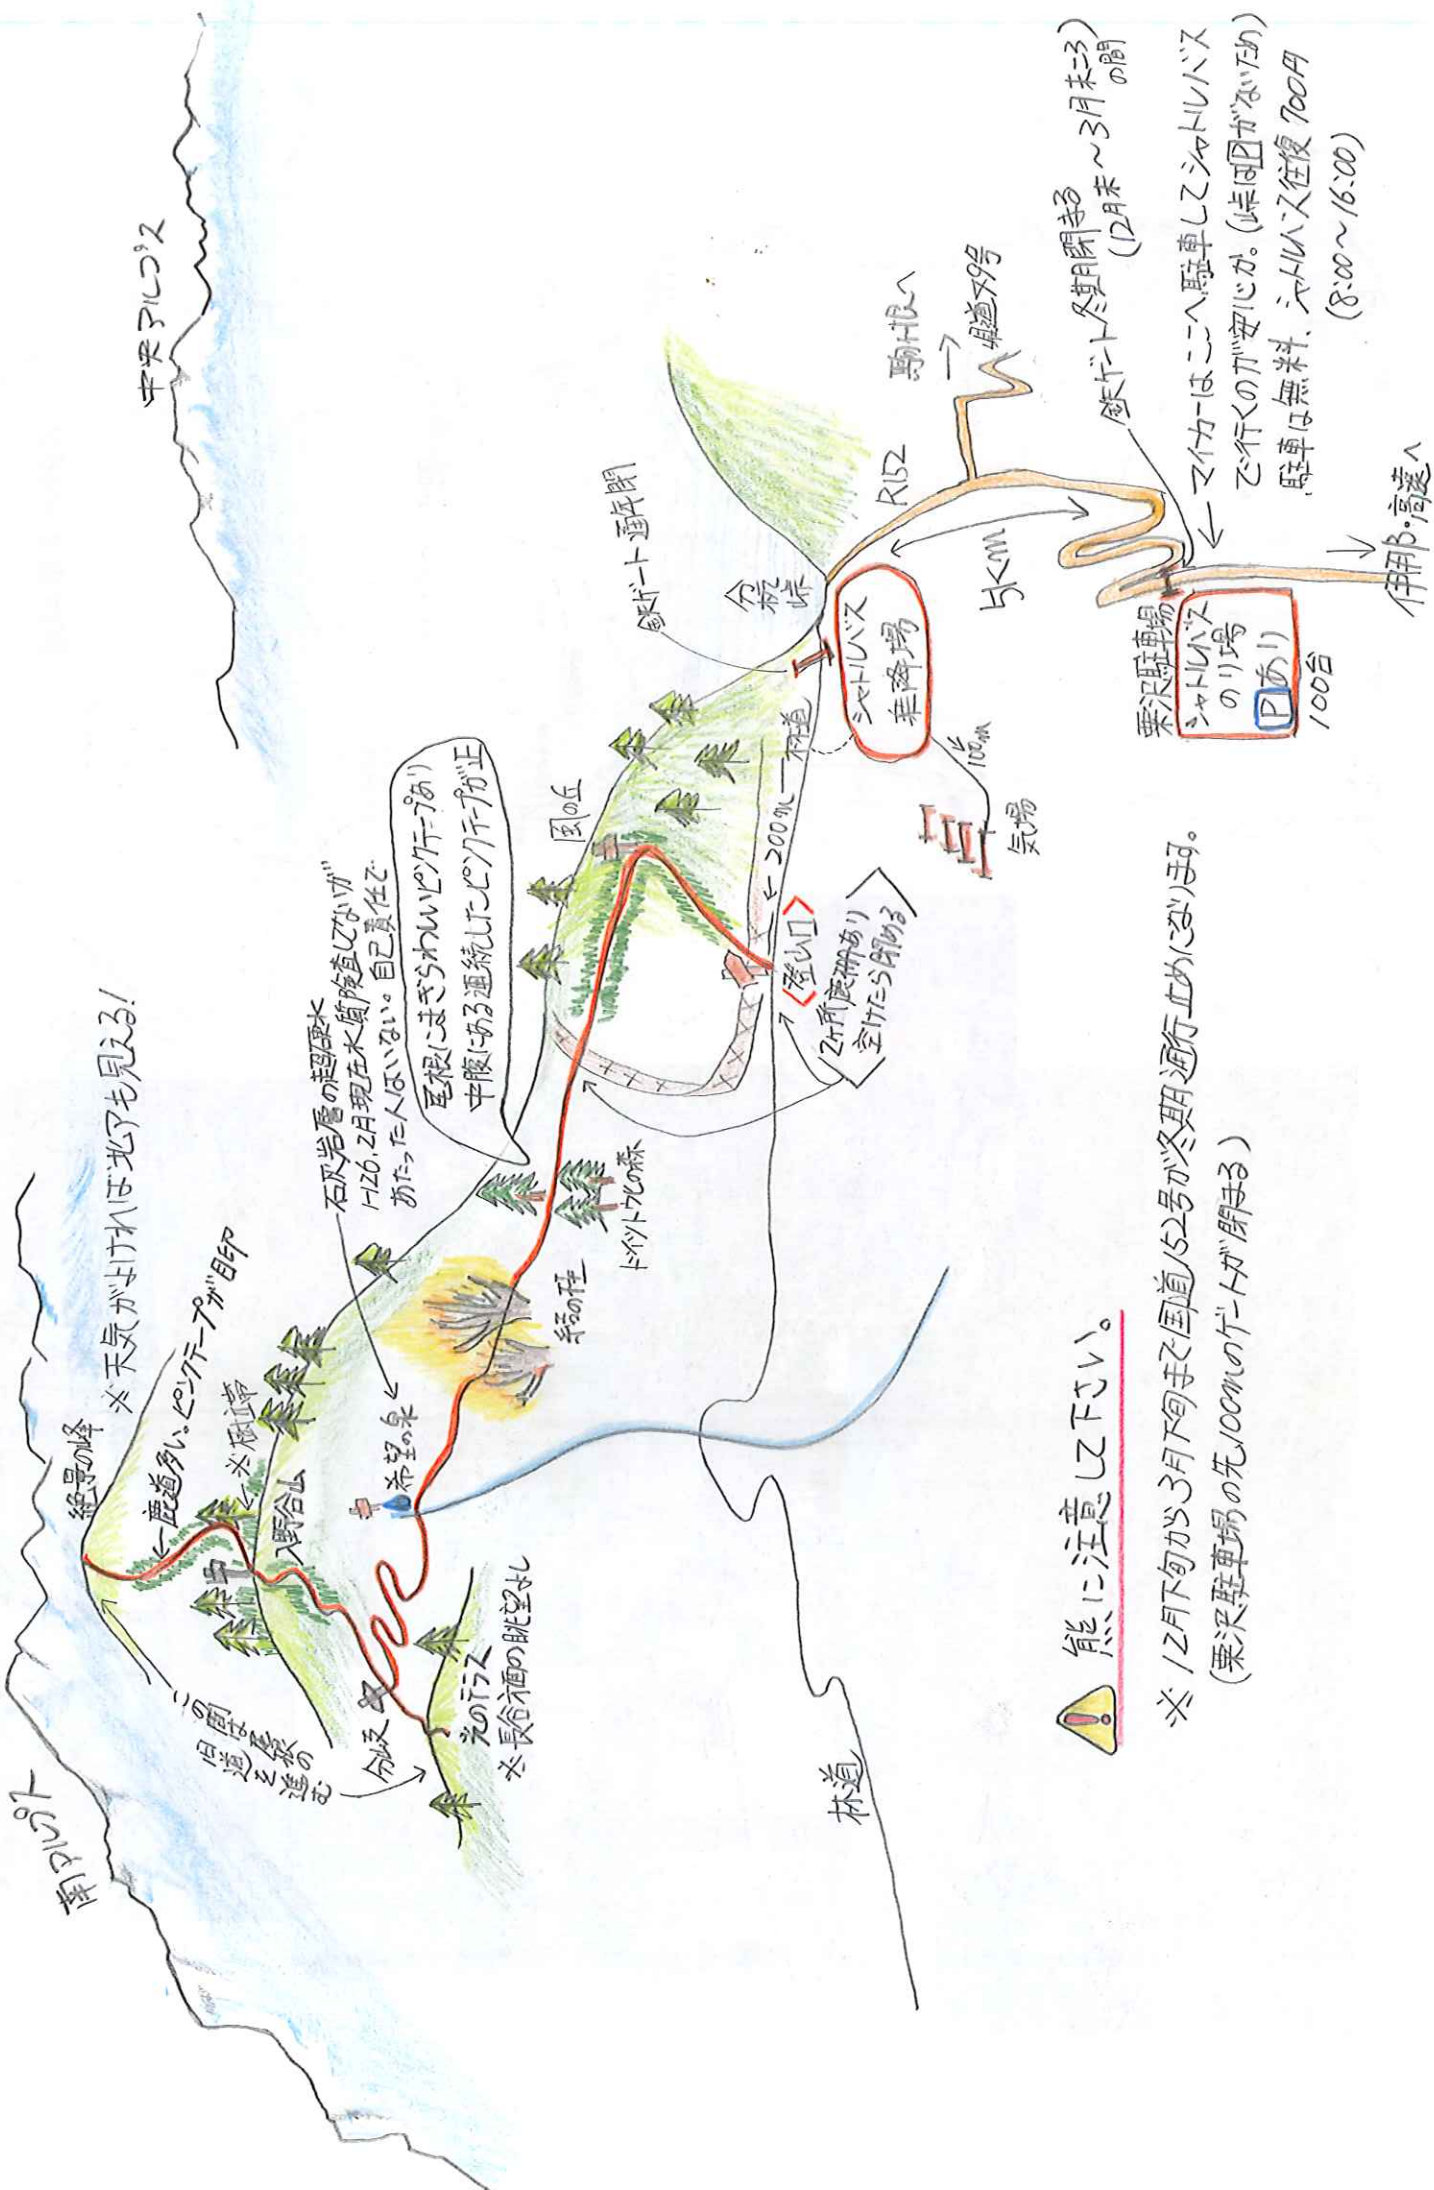 南アルプス
中央アルプス
絶景の峰
※天気がよければ北アも見える!
←鹿道多い。ピンクテープが目印
←※樹林帯
入野谷山
この間は尾根の
旧道を進む
分岐
光のテラス
※長谷方面の眺望よし
希望の泉
石灰岩層の超硬水
H26.2月現在水質検査してないが
あたった人はいない。自己責任で
尾根にまぎらわしいピンクテープあり
中腹にある連続したピンクテープが正
ドイツトウヒの森
風の丘
<登山口>
2ヶ所鹿柵あり
空けたら閉める
←200m
林道
鉄ゲート通年閉
分杭
峠
シャトルバス
乗降場
100m
気場
R152
駒ヶ根へ
→
県道49号
5km
鉄ゲート冬期閉まる
(12月末~3月末ころ)
の間
栗沢駐車場
シャトルバス
のり場
Pあり
100台
←マイカーはここへ駐車してシャトルバス
で行くのが安心か。(峠はPがないため)
駐車は無料、シャトルバス往復700円
(8:00~16:00)
→
伊那・高遠へ
林道
熊に注意して下さい。
※12月下旬から3月下旬まで国道152号が冬期通行止めになります。
(栗沢駐車場の先100mのゲートが閉まる)